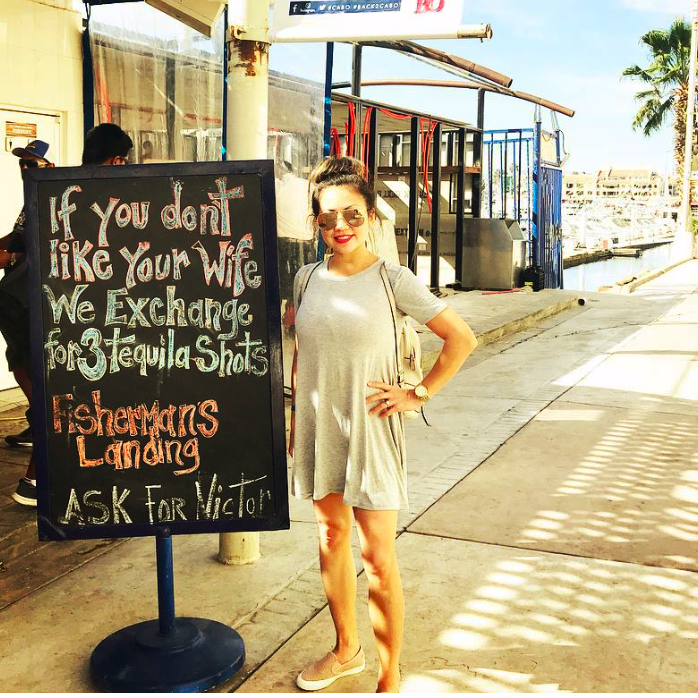 #CABO #BACKSCABO
If you don't
like Your Wife
We Exchange
for 3 tequila Shots
Fisherman's
Landing
ASK FOR Victor